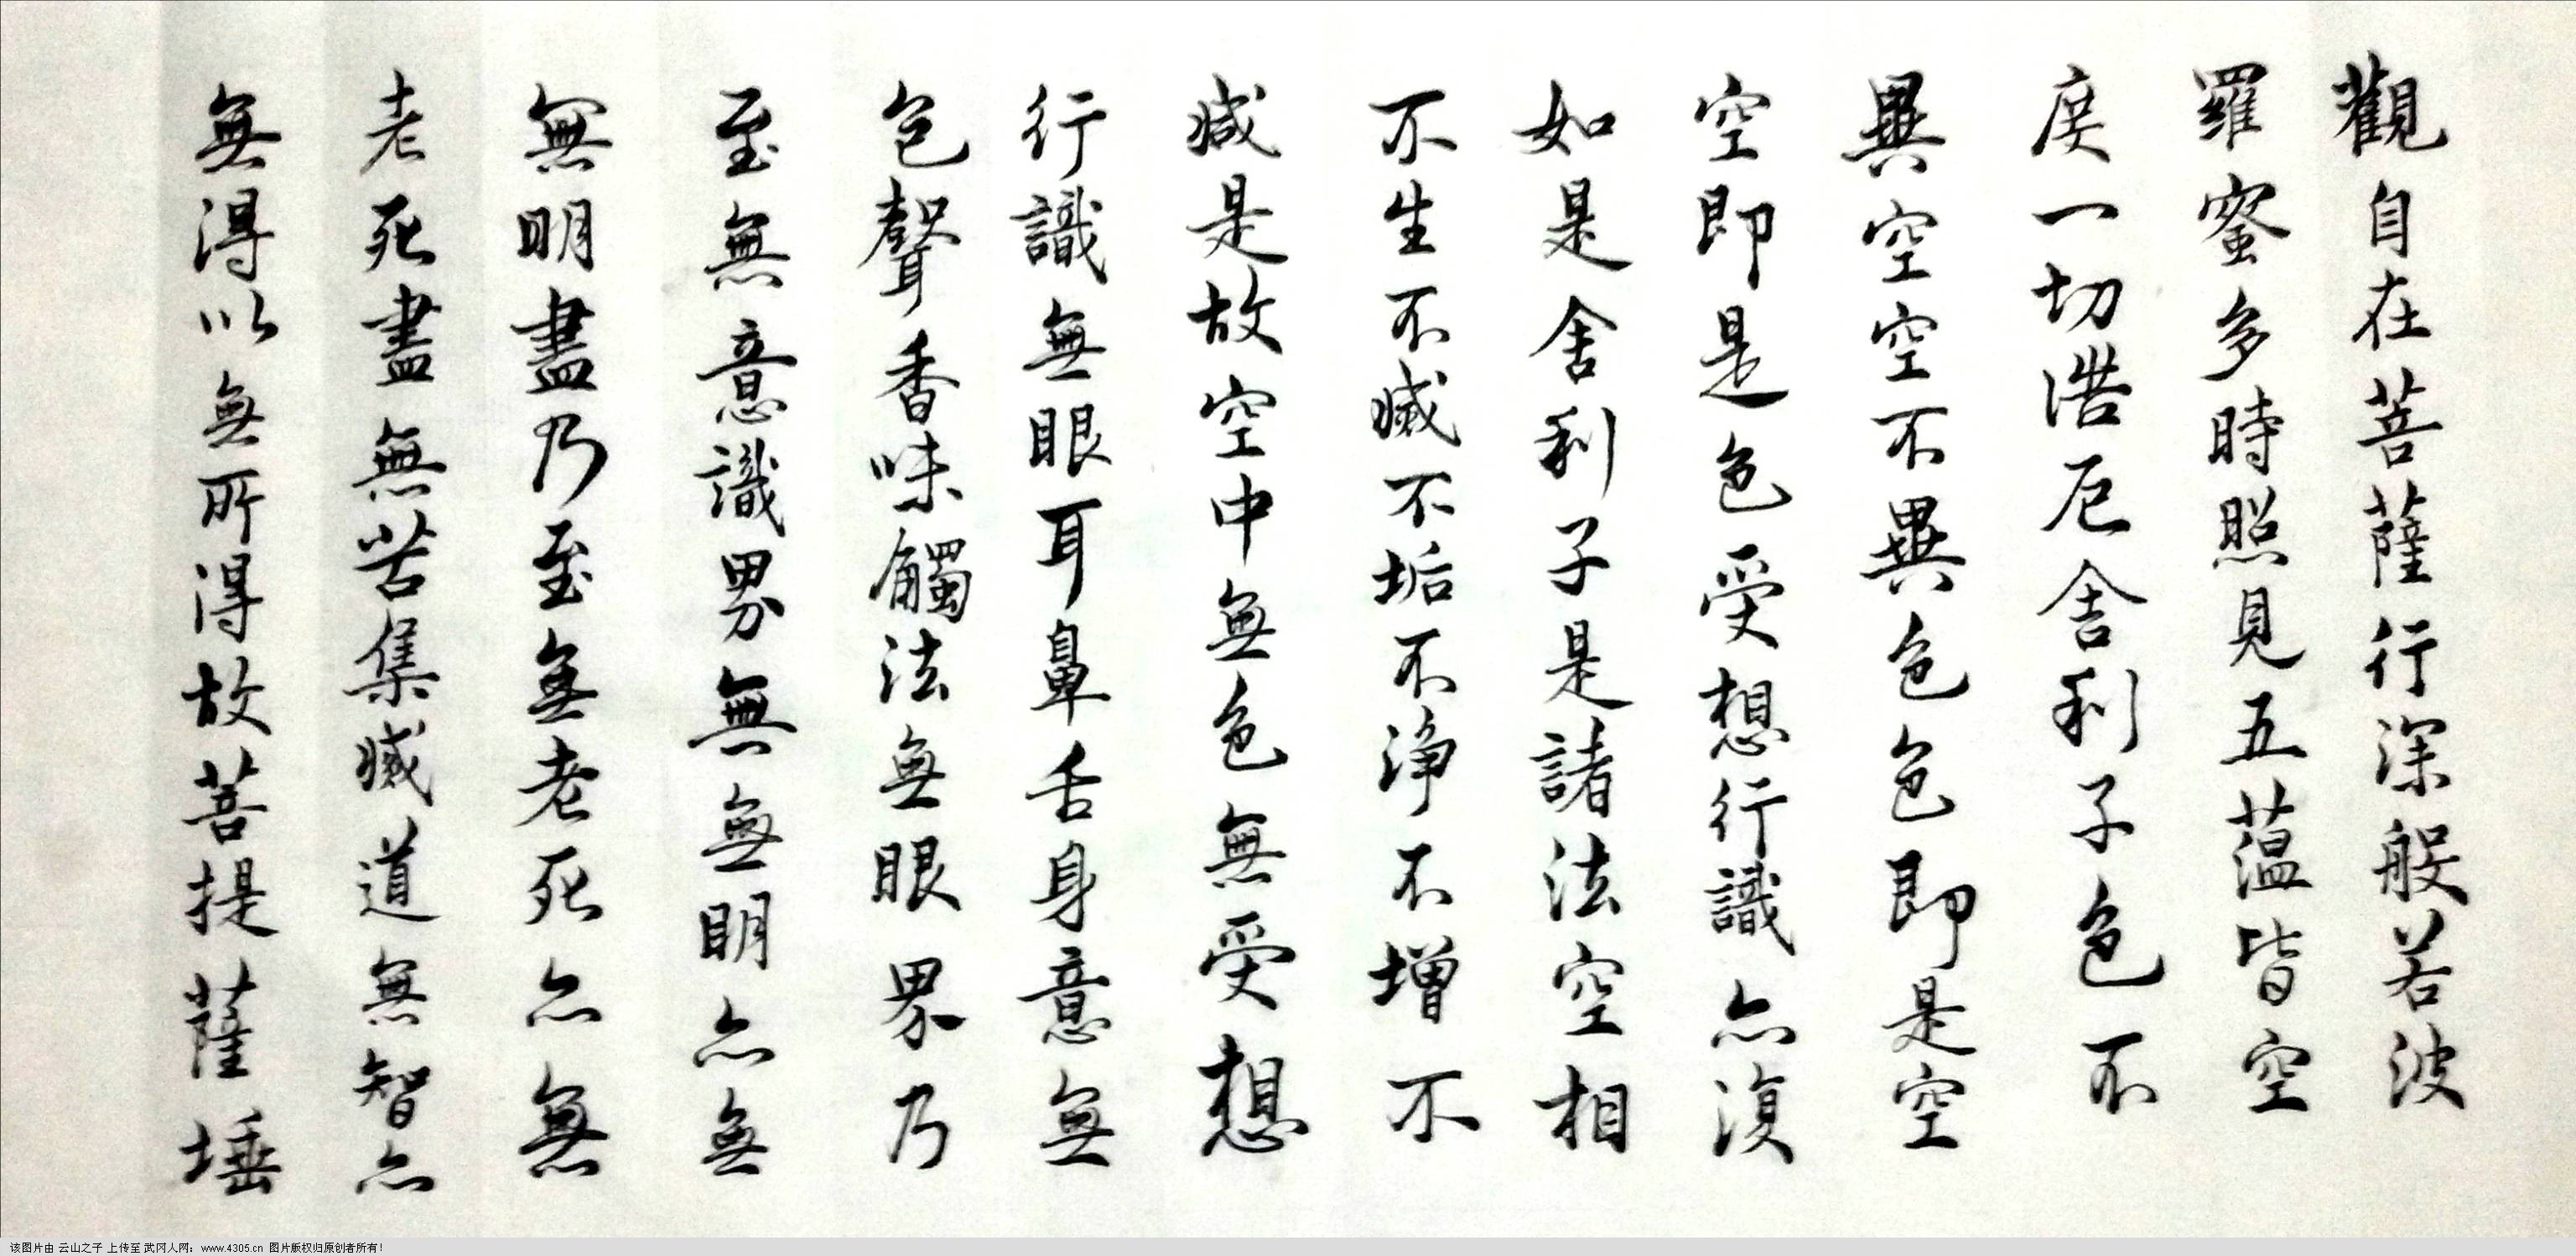 觀自在菩薩行深般若波
羅蜜多時照見五蘊皆空
度一切厄舍利子色不
異空空不異色色即是空
空即是色受想行識亦復
如是舍利子是諸法空相
不生不滅不垢不淨不增不
減是故空中無色無受想
行識無眼耳鼻舌身意無
色聲香味觸法無眼界乃
至無意識界無無明亦無
無明盡乃至無老死亦無
老死盡無苦集滅道無智亦
無得以無所得故菩提薩埵
该图片由 云山之子 上传至 武冈人网：www.4305.cn 图片版权归原创者所有！